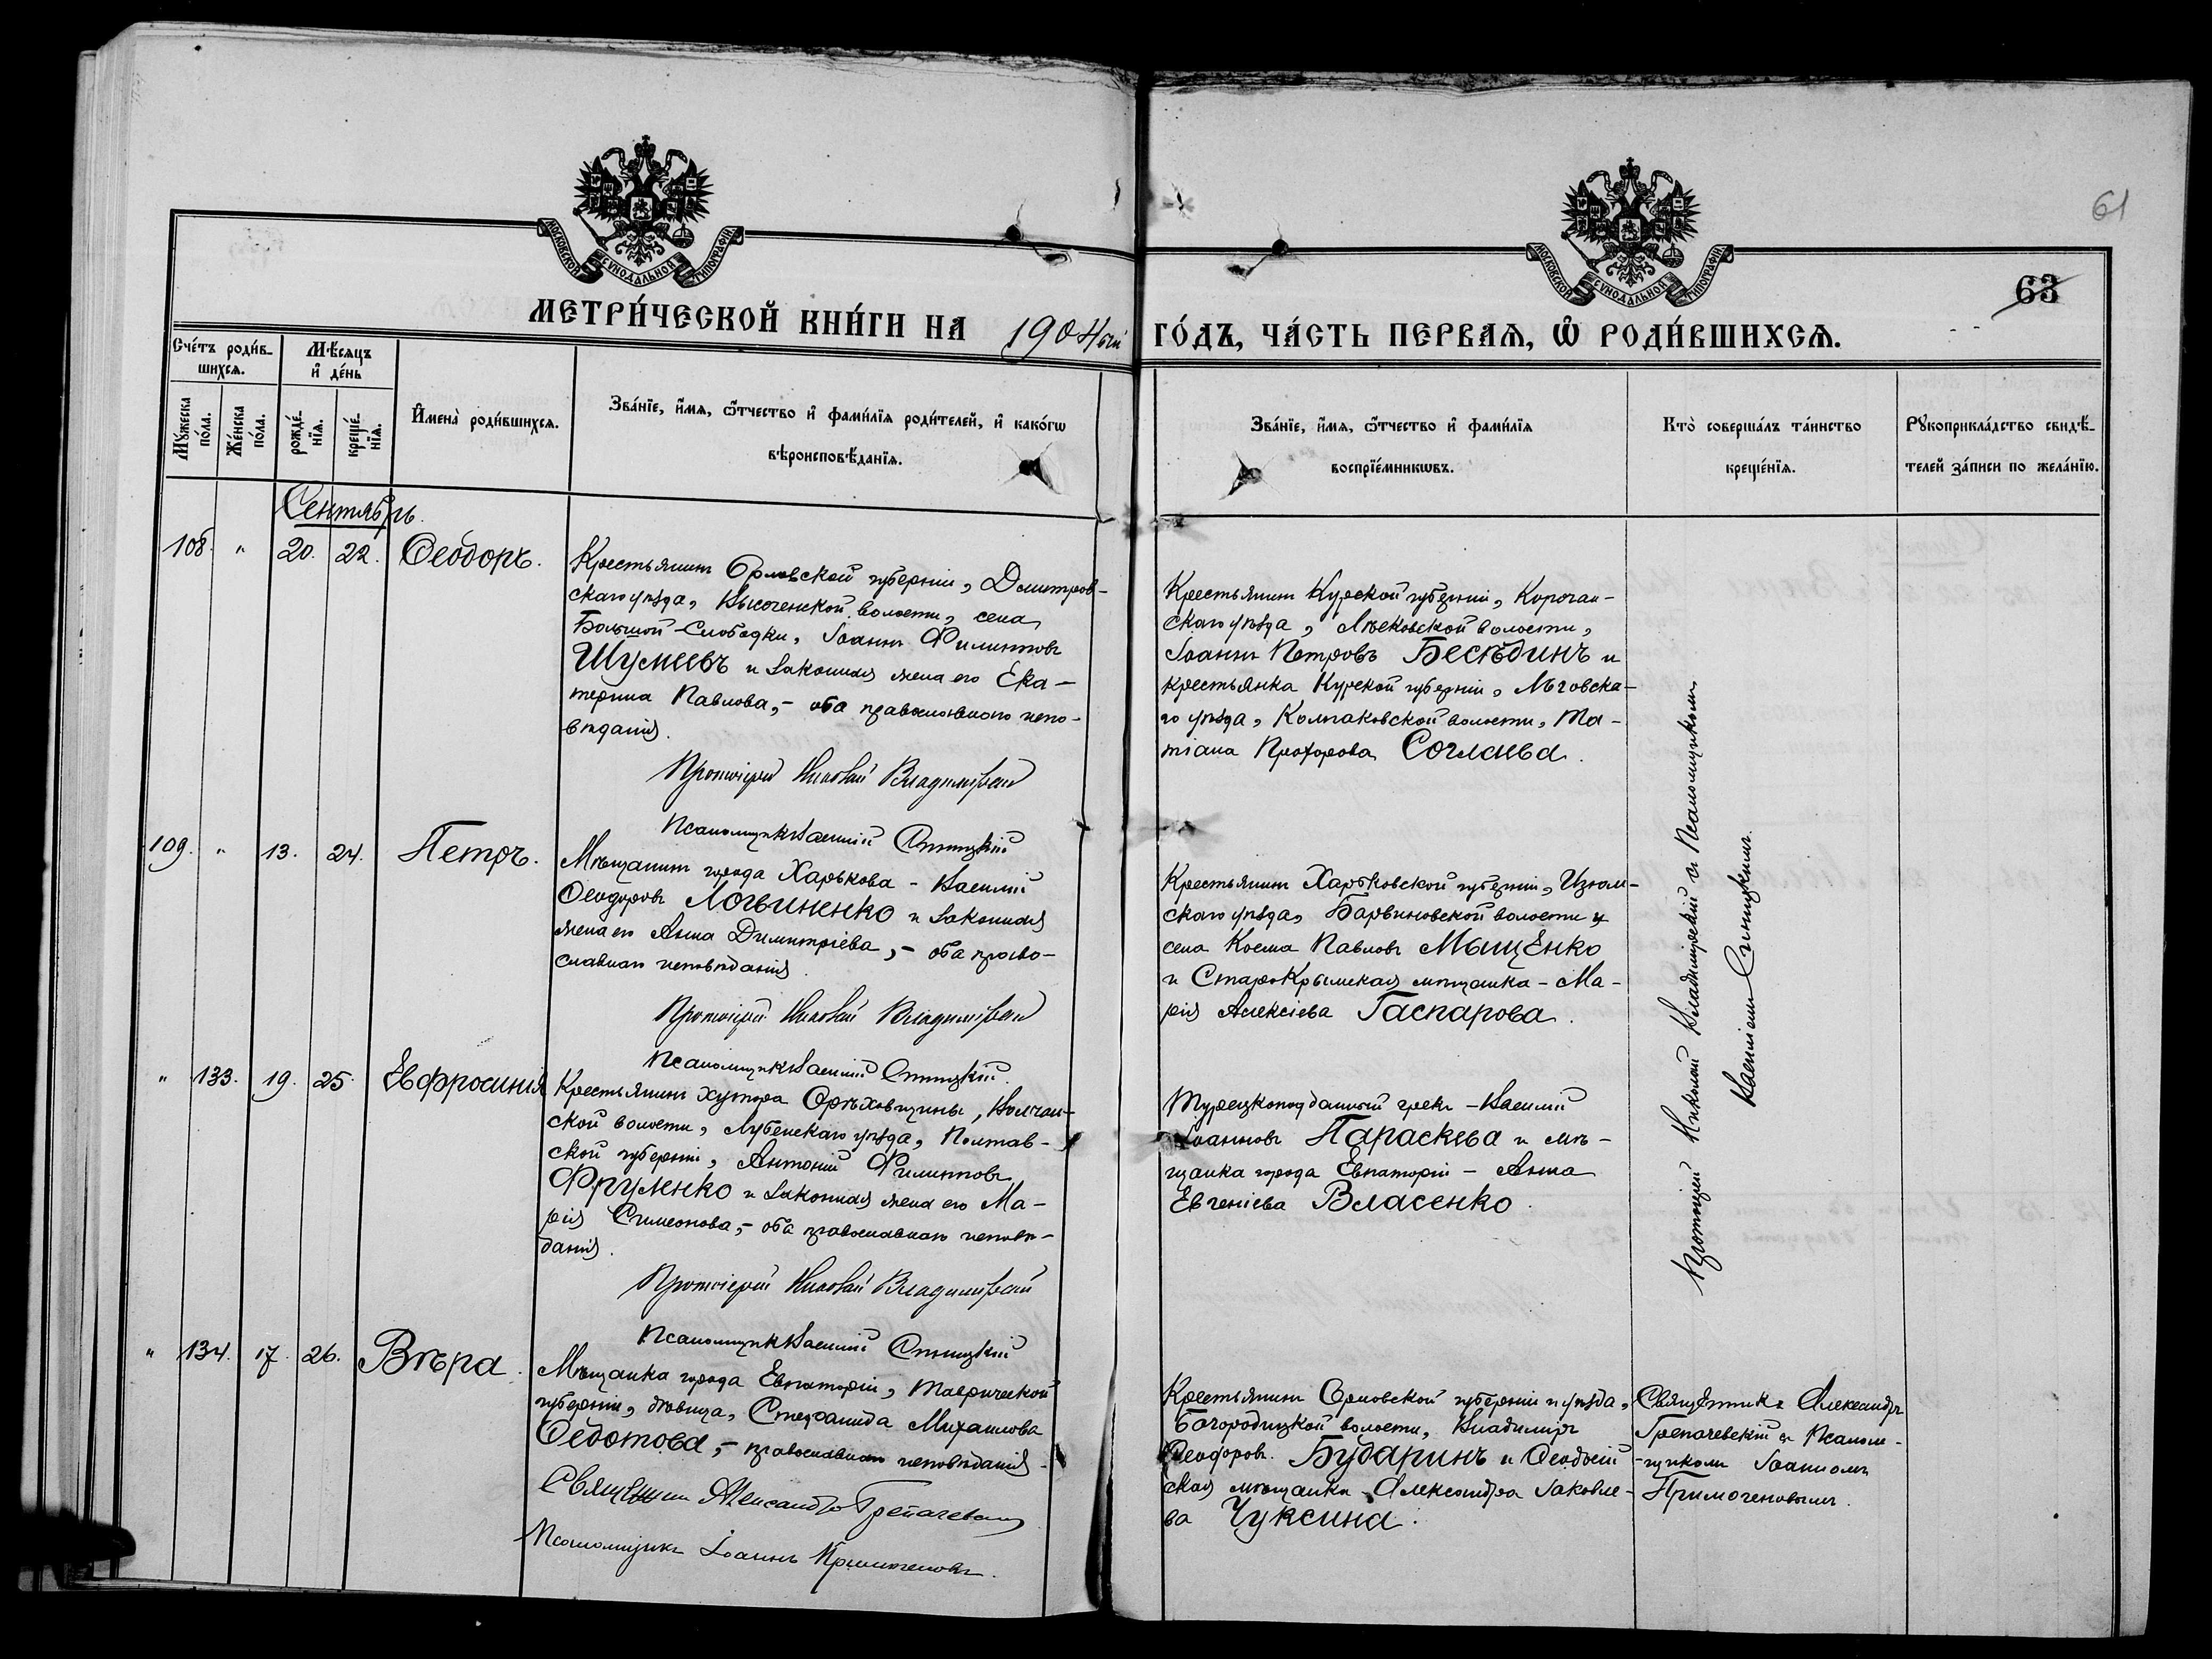 61
МОСКОВСКОЙ СУНОДАЛЬНОЙ ТИПОГРАФІИ.
МОСКОВСКОЙ СУНОДАЛЬНОЙ ТИПОГРАФІИ.
63
МЕТРИ́ЧЕСКОЙ КНИ́ГИ НА 1904ый ГО́ДЪ, ЧА́СТЬ ПЕРВАѦ, Ѡ҆ РОДИ́ВШИХСѦ.
Сче́тъ роди́в-
шихсѧ.
Мѣ́сѧцъ
и҆ де́нь
Мꙋ́жеска
по́ла.
Же́нска
по́ла.
рожде́-
нїѧ.
креще́-
нїѧ.
И҆мена̀ роди́вшихсѧ.
Зва́нїе, и҆́мѧ, ѻ҆́тчество и҆ фами́лїѧ роди́телей, и҆ како́гѡ
вѣроисповѣ́данїѧ.
Зва́нїе, и҆́мѧ, ѻ҆́тчество и҆ фами́лїѧ
воспрїе́мникѡвъ.
Кто̀ соверша́лъ та́инство
креще́нїѧ.
Рꙋкоприкла́дство свидѣ́-
телей за́писи по жела́нїю.
Сентябрь.
108. " 20. 22. Ѳеодоръ.
Крестьянинъ Орловской губерніи, Дмитров-
скаго уѣзда, волости, села
Большой-Слободки, Іоаннъ Филипповъ
Шумеевъ и законная жена его Ека-
терина Павлова, – оба православнаго испо-
вѣданія.
Протоіерей Николай Владимірскій
Псаломщикъ Василій Синицкій
Крестьянинъ Курской губерніи, Корочан-
скаго уѣзда, волости,
Іоаннъ Петровъ Бесѣдинъ и
крестьянка Курской губерніи, Льговска-
го уѣзда, Колпаковской волости, Та-
тіана Прохорова
109. " 13. 24. Петръ.
Мѣщанинъ города Харькова – Василій
Ѳеодоровъ Логвиненко и законная
жена его Анна Димитріева, – оба право-
славнаго исповѣданія.
Протоіерей Николай Владимірскій
Псаломщикъ Василій Синицкій.
Крестьянинъ Харьковской губерніи, Изюм-
скаго уѣзда, Барвиновской волости и
села Косма Павловъ Мащенко
и СтароКрымская мѣщанка – Ма-
рія Алексіева Гаспарова.
" 133. 19. 25. Евфросинія
Крестьянинъ хутора Орѣховщины, Волчан-
ской волости, Лубенскаго уѣзда, Полтав-
ской губерніи, Антоній Филипповъ
Фруменко и законная жена его Ма-
рія Симеонова, – оба православнаго исповѣ-
данія.
Протоіерей Николай Владимірскій
Псаломщикъ Василій Синицкій
Турецкоподданный грекъ – Василій
Іоанновъ Параскева и мѣ-
щанка города Евпаторіи – Анна
Евгеніева Власенко.
Протоіерей Николай Владимірскій съ Псаломщикомъ
Василіемъ Синицкимъ.
" 134. 17. 26. Вѣра.
Мѣщанка города Евпаторіи, Таврической
губерніи, дѣвица, Стефанида Михаилова
Ѳедотова, – православнаго исповѣданія.
Священникъ Александръ Грепачевскій
Псаломщикъ Іоаннъ Примогеновъ.
Крестьянинъ Орловской губерніи и уѣзда,
Богородицкой волости, Владиміръ
Ѳеодоровъ Бударинъ и Ѳеодосій-
ская мѣщанка Александра Іаковле-
ва Чуксина.
Священникъ Александръ
Грепачевскій съ Псалом-
-щикомъ Іоанномъ
Примогеновымъ.